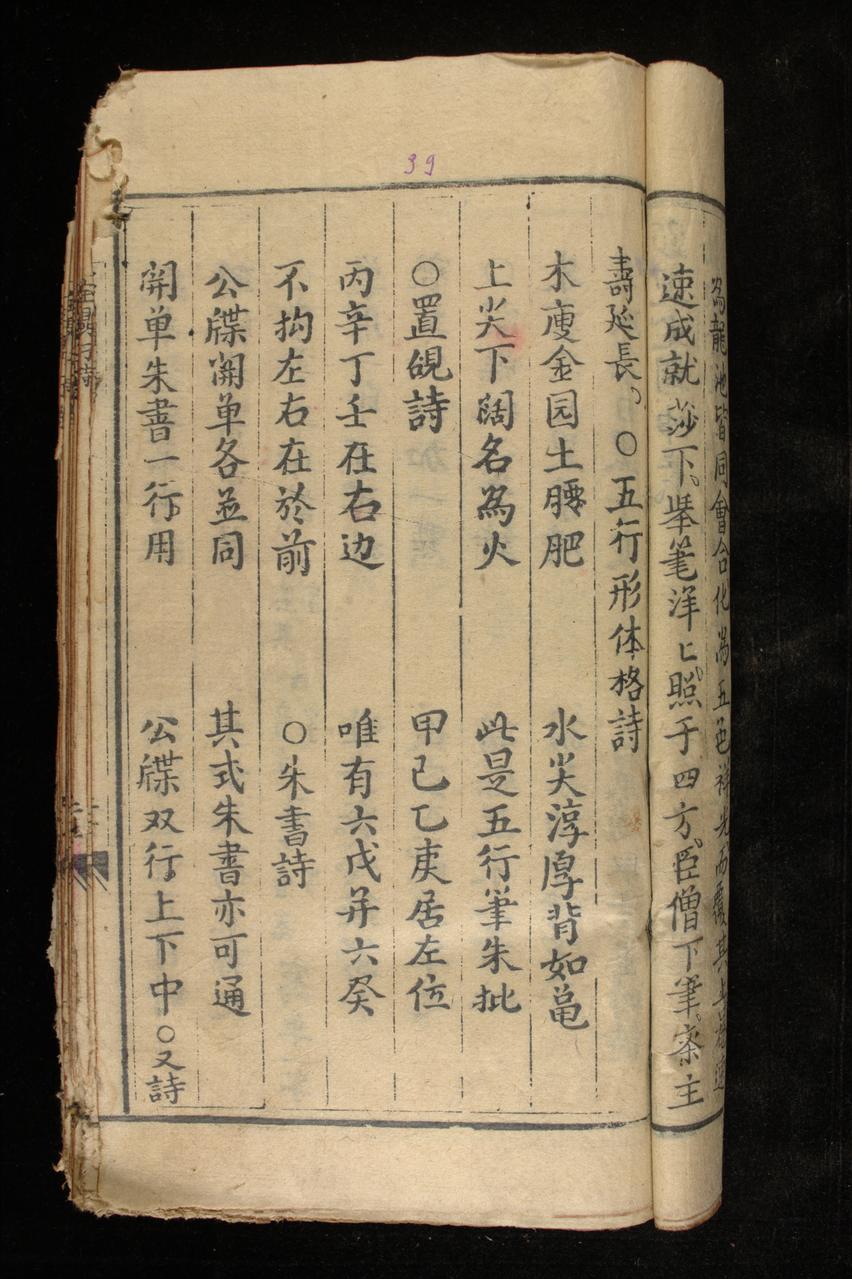 39
為龍池皆同會合化為五色祥光而覆其上
速成就莎下、举筆洋〻、照于四方、臣僧下筆、斋主
壽延長、○五行形体格詩
木瘦金园土腰肥 水尖淳厚背如黾
上尖下闊名為火 此是五行筆朱批
○置硯詩 甲己乙庚居左位
丙辛丁壬在右边 唯有六戊并六癸
不拘左右在於前 ○朱書詩
公牒開单各並同 其式朱書亦可通
開单朱書一行用 公牒双行上下中○又詩